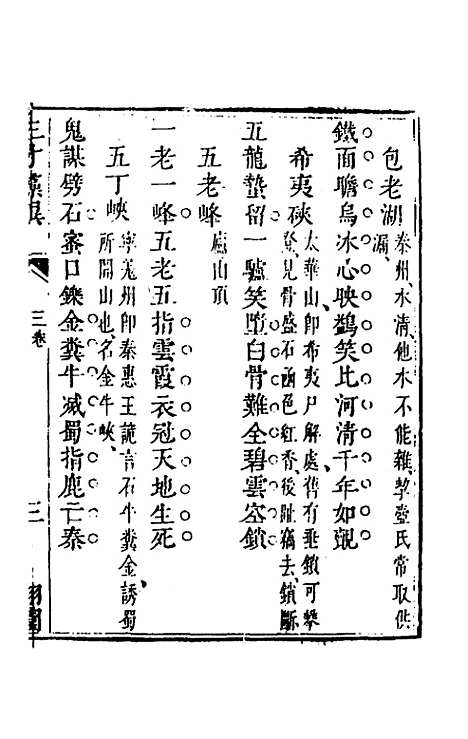 包老湖 泰州、水清、他水不能雜、挈壺氏常取供漏、
鐵面瞻烏冰心映鷁笑比河清千年如覿
希夷硤 太華山、卽希夷尸解處、舊有垂鎖可攀登、見骨盛石函色紅香、後趾竊去、鎖斷
五龍蟄留一驢笑墮白骨難全碧雲空鎖
五老峰 廬山頂
一老一峰五老五指雲霞衣冠天地生死
五丁峽 寧羌州卽秦惠王詭言石牛糞金、誘蜀所開山也、名金牛峽、
鬼謀劈石寍口鑠金糞牛滅蜀指鹿亡秦
三卷
三